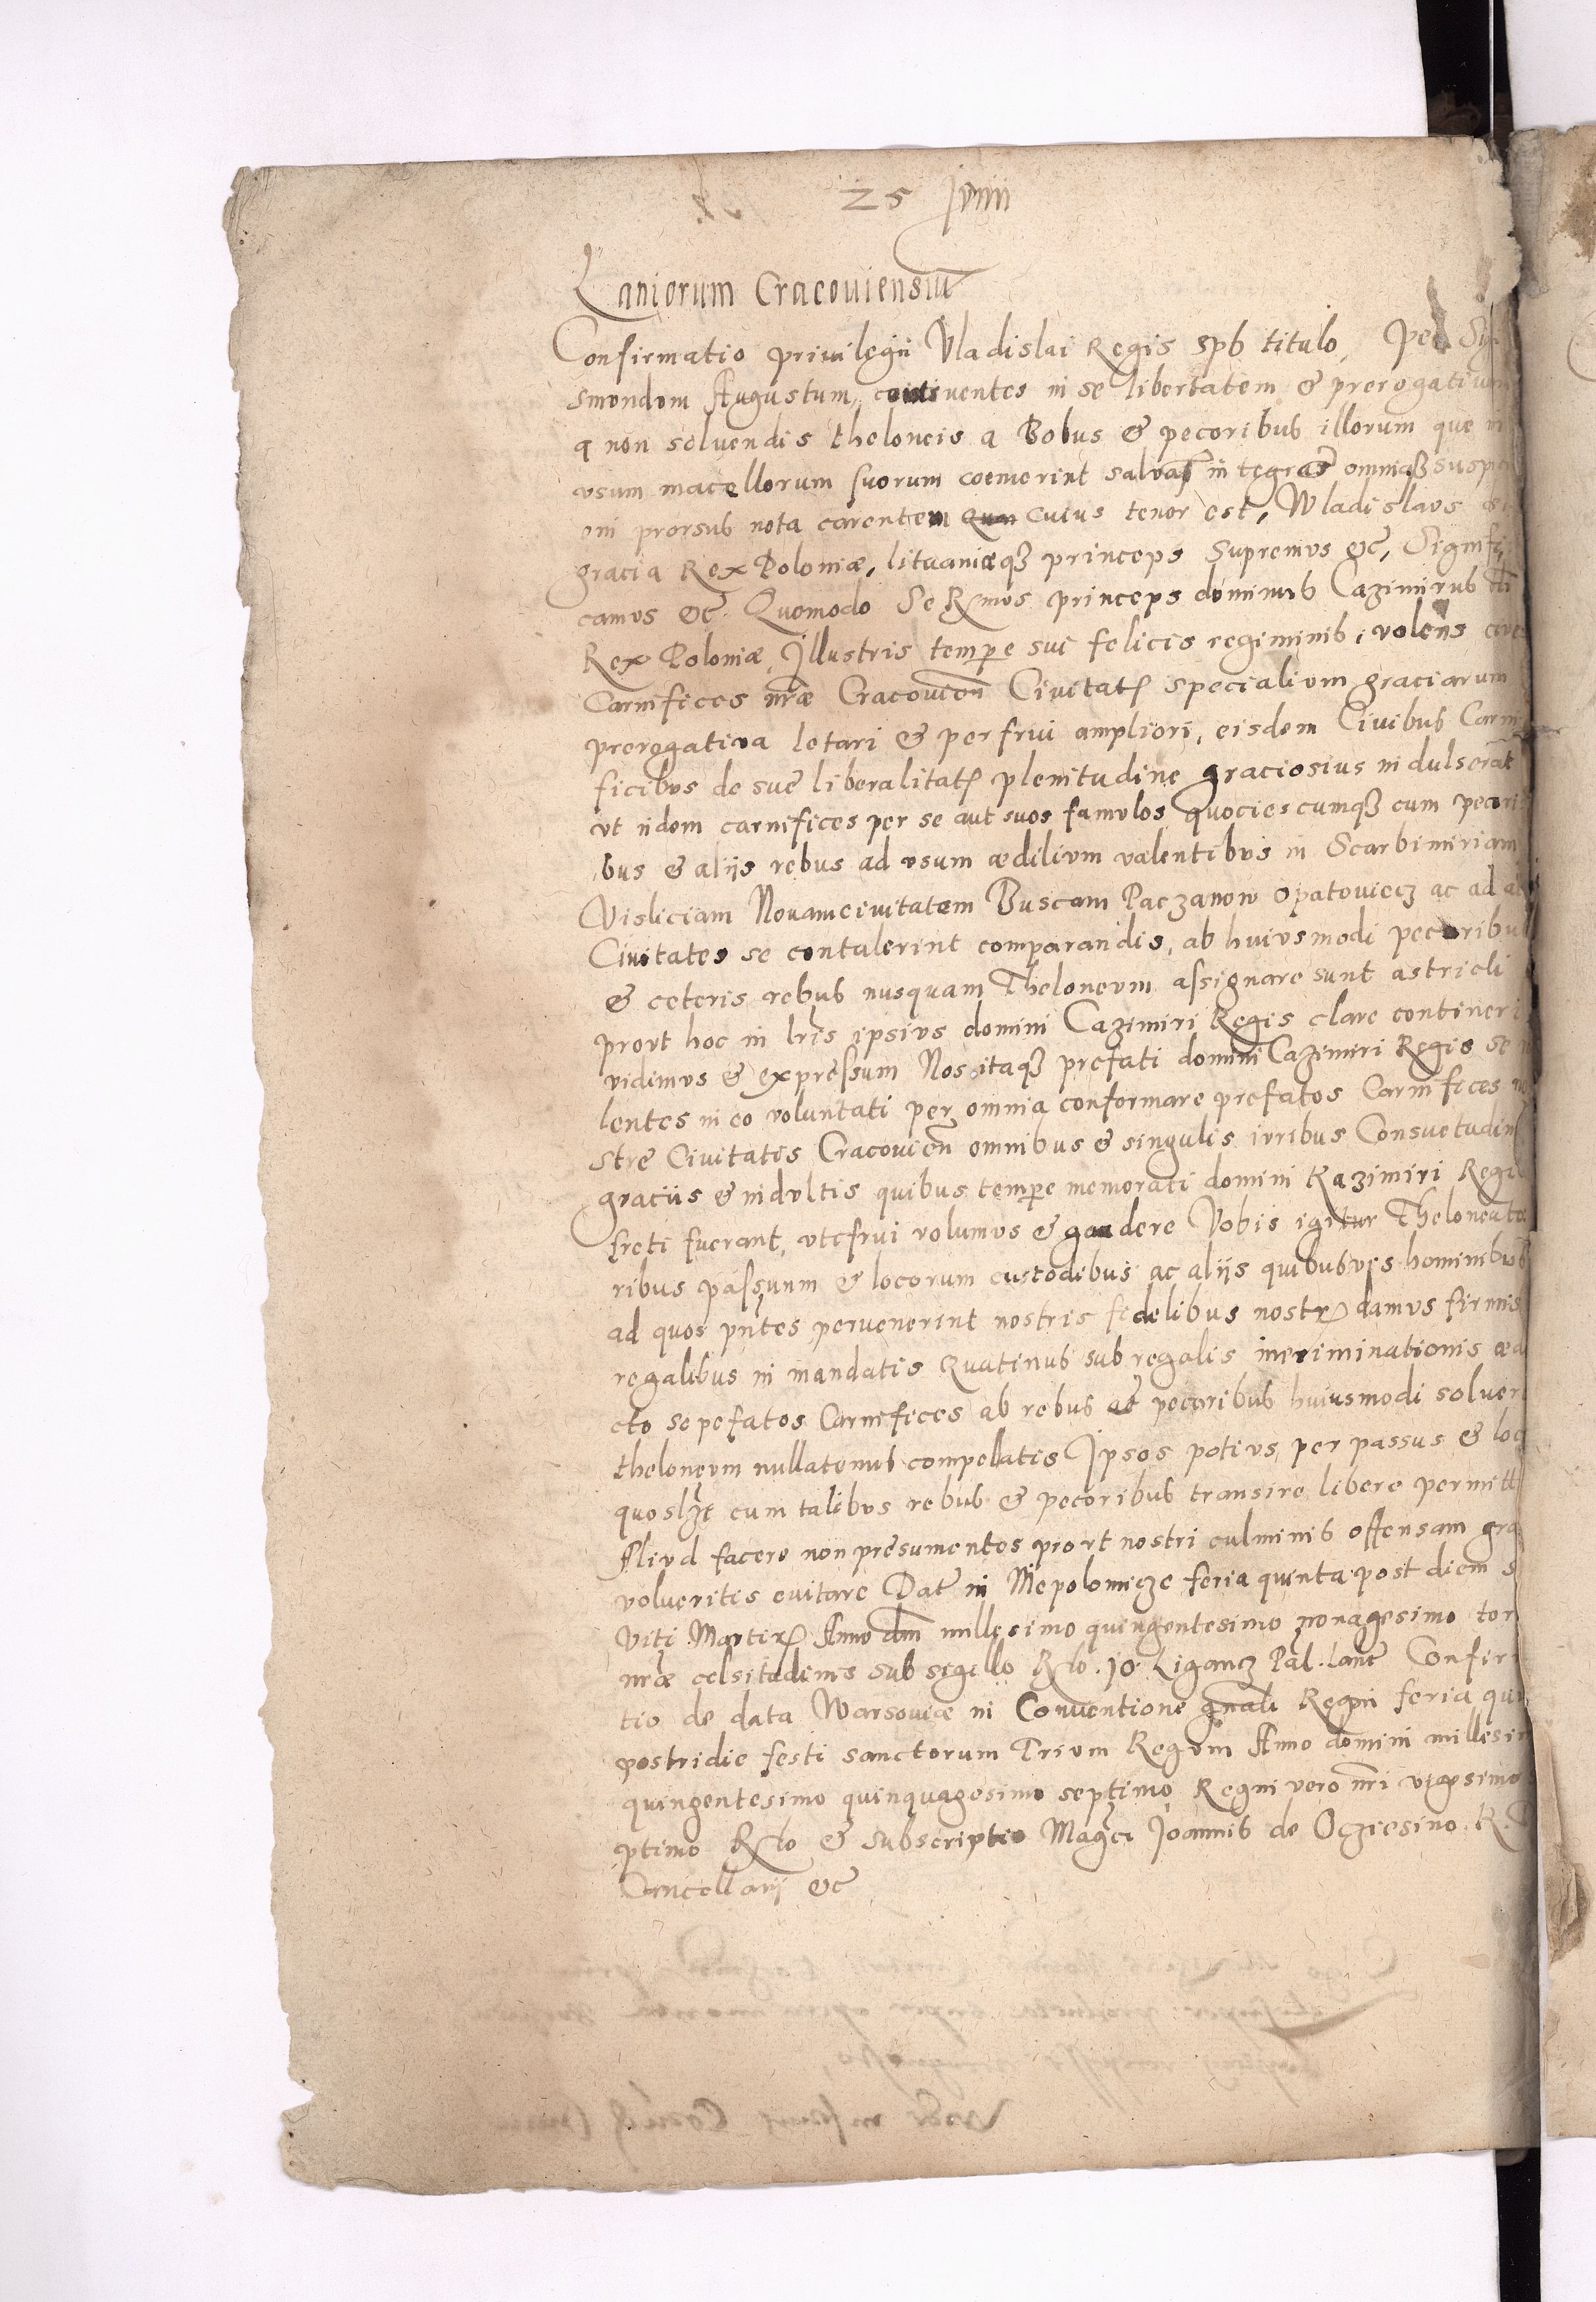 25 Junii
Laniorum Cracouiensiu
Confirmatio priuilegii Vladislai Regis spb titulo, Per
smondom Augustum, continentes in se libertatem & prerogatiuam
a non soluendis theloneis a Bobus & pecoribus illorum que in
vsum macellorum suorum coemerint saluas integras omniqȝ suspici
oni prorsus nota carentem cuius tenor est, Wladislaus dei
gracia Rex Poloniæ, lituaniæqȝ princeps Supremus &c, Signifi
camus &c. Quomodo Serxmus princeps dominus Cazimirus
Rex Poloniæ Illustris tempe sui felicis regiminis, volens ciues
Carnifices nræ Cracouien Ciuitatis specialium graciarum
prerogatiua letari & perfrui ampliori, eisdem Ciuibus Carni
ficibus de sue liberalitatis plenitudine graciosius indulserat
vt iidem carnifices per se aut suos famulos quociescumqȝ cum pecori
bus & aliis rebus ad vsum ædilium valentibus in Scarbimiriam
Visliciam Nouamciuitatem Buscam Paczanow Opatouiecz ac ad
Ciuitates se contulerint comparandis, ab huiusmodi pecoribus
& ceteris rebus nusquam Theloneum assignare sunt astricti
prout hoc in lris ipsius domini Cazimiri Regis clare contineri
vidimus & expressum Nos itaqȝ prefati domini Cazimiri Regis se
lentes in eo voluntati per omnia conformare prefatos Carnifices no
stre Ciuitatis Cracouien omnibus & singulis iuribus Consuetudin
graciis & indultis quibus tempe memorati domini Kazimiri Regis
freti fuerant, vtifrui volumus & gaudere Vobis igitur Theloneato
ribus passuum & locorum custodibus ac aliis quibusuis hominibus
ad quos pntes peruenerint nostris fidelibus nostris damus firmis
regalibus in mandatis Quatinus sub regalis incriminationis
cto sepefatos Carnifices ab rebus ac pecoribus huiusmodi soluere
theloneum nullatenus compellatis Ipsos potius per passus & loca
quoslȝt cum talibus rebus & pecoribus transire libere permitt
Aliud facere non presumentes prout nostri culminis offensam gra
volueritis euitare Dat in Niepolomicze feria quinta post diem s
Viti Martiris Anno dni millesimo quingentesimo nonagesimo
nræ celsitudinis sub sigello Rlo. Jo. Ligancz Pal. Lanc Confirm
tio de data Warsouiæ in Conuentione gnali Regni feria quin
postridie festi sanctorum Trium Regum Anno domini millesim
quingentesimo quinquagesimo septimo Regni vero nri vigesimo s
ptimo Rlo & subscriptio Magci Joannis de Ocziesino. R.
Cancellarij &c